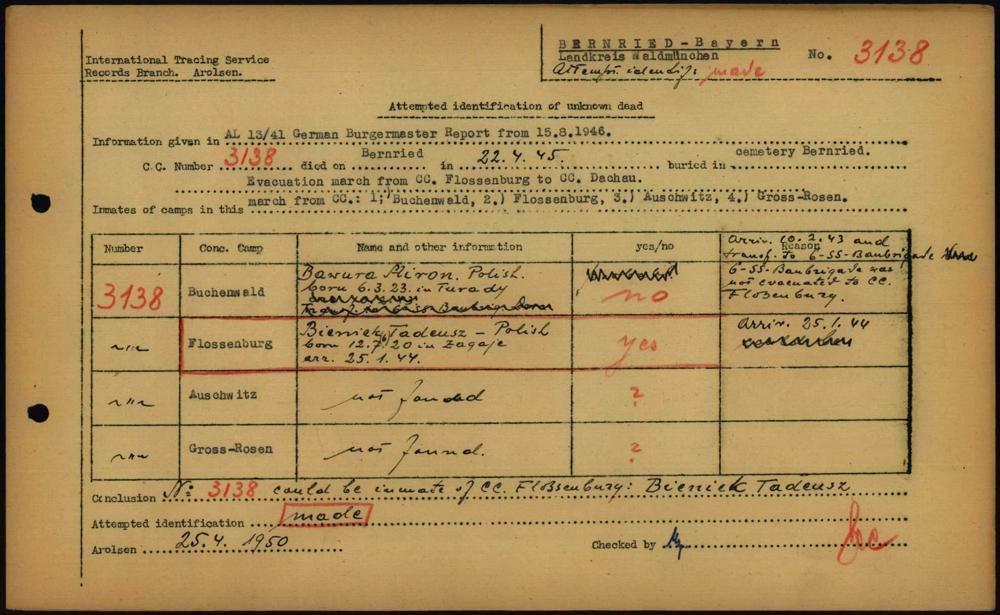 International Tracing Service
Records Branch. Arolsen.
BERNRIED-Bayern
Landkreis Waldmünchen
Attempt. identif: made
No. 3138
Attempted identification of unknown dead
Information given in AL 13/41 German Burgermaster Report from 15.8.1946.
C.C. Number 3138 died on Bernried in 22.4.45. buried in cemetery Bernried.
Evacuation march from CC. Flossenburg to CC. Dachau.
Inmates of camps in this march from CC.: 1,) Buchenwald, 2.) Flossenburg, 3.) Auschwitz, 4.) Gross-Rosen.
Number Conc. Camp Name and other information yes/no Reason
3138 Buchenwald
Bawura Miron. Polish.
born 6.3.23. in Turady
no
Arriv. 10.2.43 and
transf. to 6-SS-Baubrigade
6-SS-Baubrigade was
not evacuated to CC.
Floßenburg.
-"- Flossenburg
Bieniek Tadeusz - Polish
born 12.7.20 in Zagaje
arr. 25.1.44.
yes
Arriv. 25.1.44
-"- Auschwitz not founded ?
-"- Gross-Rosen not found. ?
Conclusion No: 3138 could be inmate of CC. Floßenburg: Bieniek Tadeusz
Attempted identification made
Arolsen 25.4.1950 Checked by